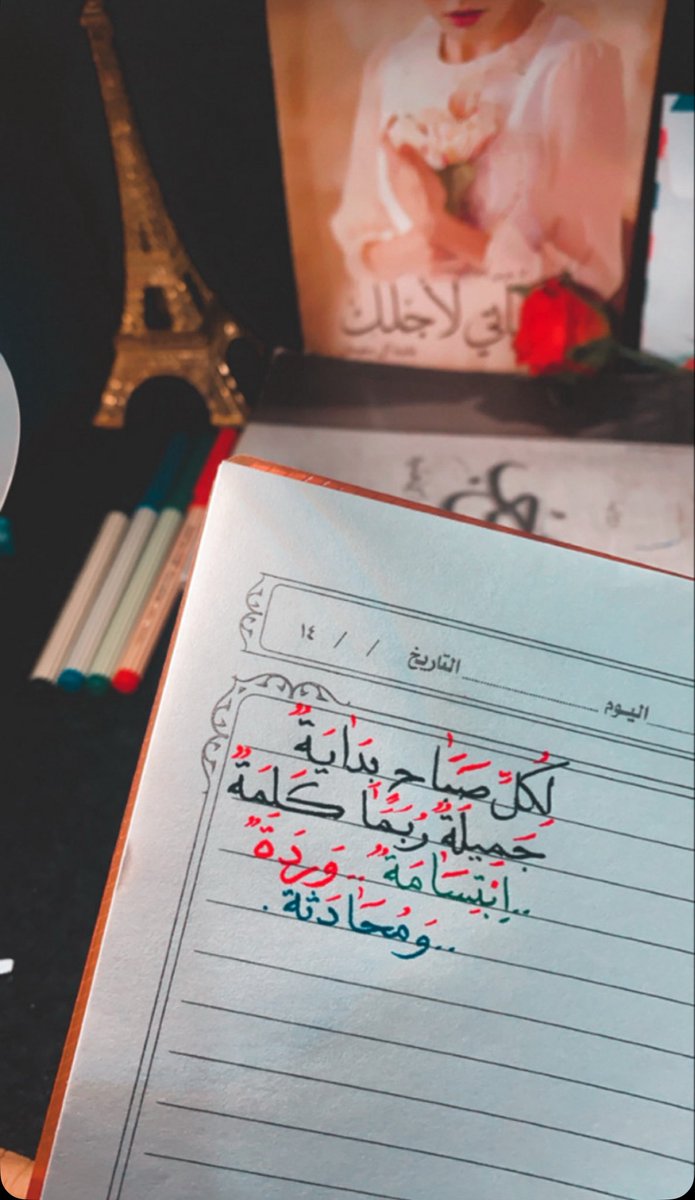 لأجلك
اليوم التاريخ / / ١٤
لِكُلِّ صَبَاحٍ بِدَايَةٌ
جَمِيلَةٌ رُبَمَا كَلِمَةٌ
..اِبْتِسَامَةٌ ..وَرْدَةٌ
..وَمُحَادَثَة .